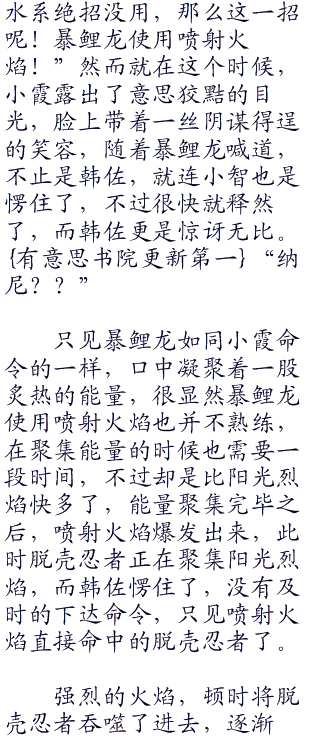 水系绝招没用，那么这一招
呢！暴鲤龙使用喷射火
焰！”然而就在这个时候，
小霞露出了意思狡黠的目
光，脸上带着一丝阴谋得逞
的笑容，随着暴鲤龙喊道，
不止是韩佐，就连小智也是
愣住了，不过很快就释然
了，而韩佐更是惊讶无比。
{有意思书院更新第一}“纳
尼？？”
只见暴鲤龙如同小霞命
令的一样，口中凝聚着一股
炙热的能量，很显然暴鲤龙
使用喷射火焰也并不熟练，
在聚集能量的时候也需要一
段时间，不过却是比阳光烈
焰快多了，能量聚集完毕之
后，喷射火焰爆发出来，此
时脱壳忍者正在聚集阳光烈
焰，而韩佐愣住了，没有及
时的下达命令，只见喷射火
焰直接命中的脱壳忍者了。
强烈的火焰，顿时将脱
壳忍者吞噬了进去，逐渐